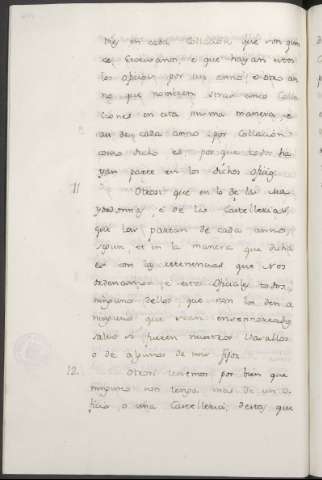 Mes en cada Collacion que son quin
ce Escusanos, e que hayan estos
los oficios por un anno, e otro an
no que nombren otras cinco Colla
ciones en esta misma manera, e
asi de cada anno por Collacion
como dicho es, porque todos ha
yan parte en los dichos ofic.s
11 Otrosi que en lo de las Ma
yordomias, e de las Castellerias,
que las partan de cada anno,
segun et en la manera que dicha
es con las retenencias que Nos
ordenamos e estos Oficiales todos,
ninguno dellos, que non los den a
ninguno que sean
salvo si fueren nuestros Vasallos
o de algunos de mis fijos.
12. Otrosi tenemos por bien que
ninguno non tenga mas de un o
ficio o una Castelleria, destos que